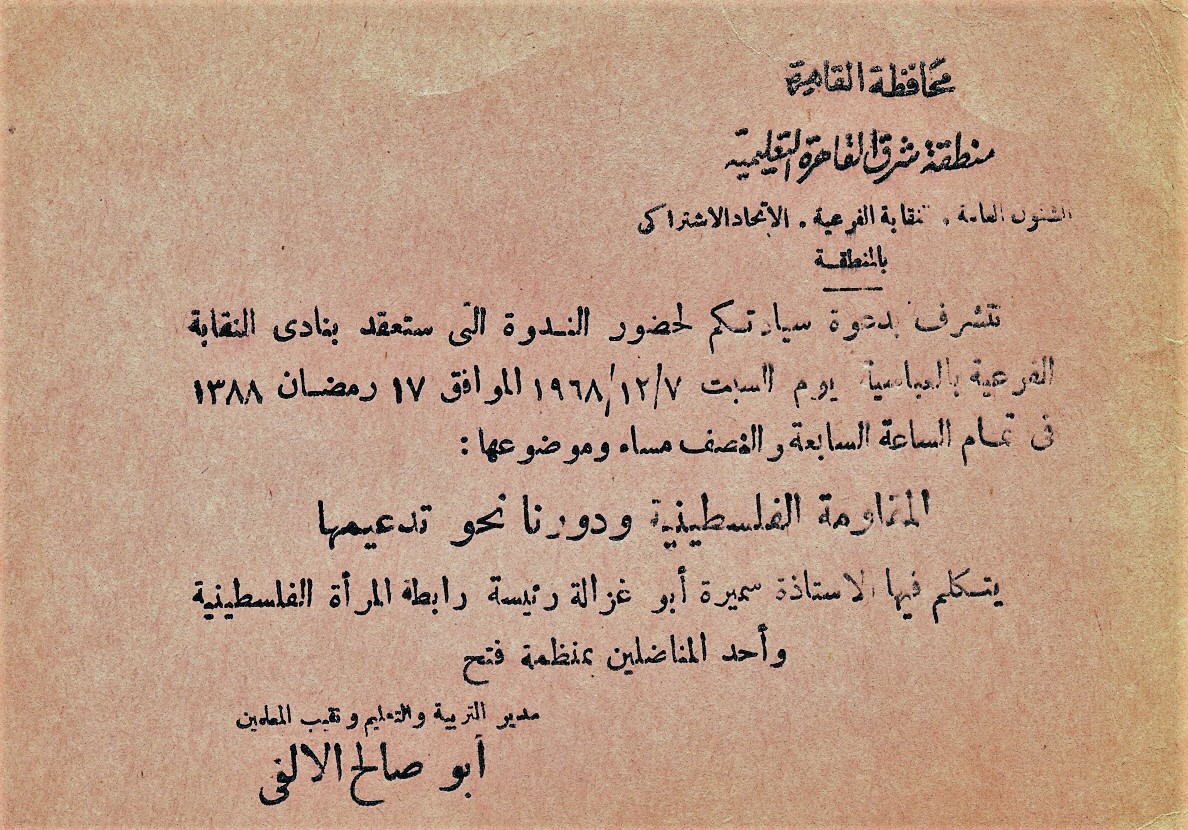 محافظة القاهرة
منطقة شرق القاهرة التعليمية
الشئون العامة . نقابة الفرعية . الاتحاد الاشتراكى
بالمنطقة
نتشرف بدعوة سيادتكم لحضور الندوة التى ستعقد بنادى النقابة
الفرعية بالعباسية يوم السبت ١٩٦٨/١٢/٧ الموافق ١٧ رمضان ١٣٨٨
فى تمام الساعة السابعة والنصف مساء وموضوعها :
المقاومة الفلسطينية ودورنا نحو تدعيمها
يتكلم فيها الاستاذة سميرة أبو غزالة رئيسة رابطة المرأة الفلسطينية
وأحد المناضلين بمنظمة فتح
مدير التربية والتعليم ونقيب المعلمين
أبو صالح الالفى